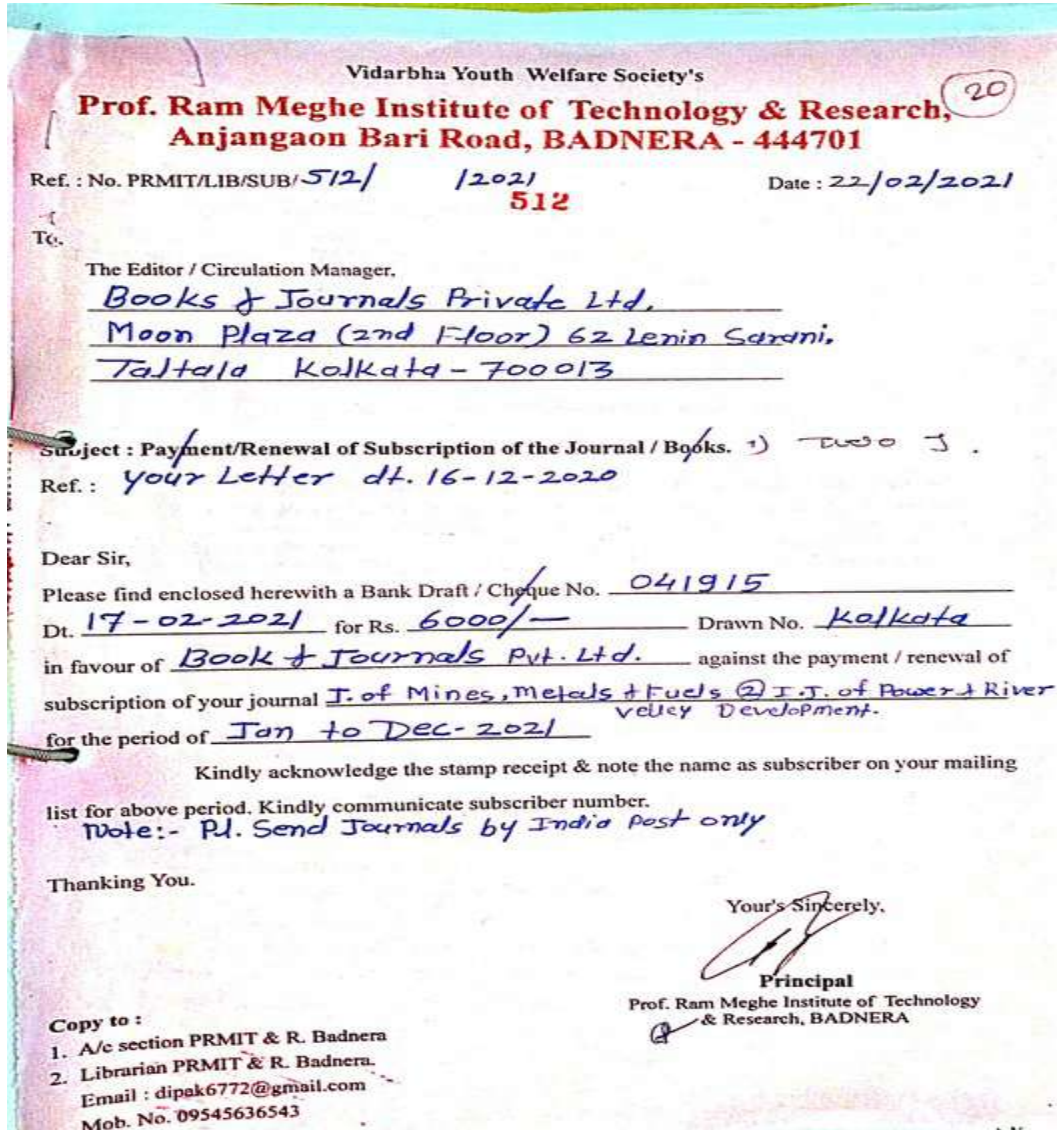 Vidarbha Youth Welfare Society's
20
Prof. Ram Meghe Institute of Technology & Research,
Anjangaon Bari Road, BADNERA - 444701
Ref. : No. PRMIT/LIB/SUB/ 512/ /2021 Date : 22/02/2021
512
To.
The Editor / Circulation Manager,
Books & Journals Private Ltd.
Moon Plaza (2nd Floor) 62 Lenin Sarani,
Taltala Kolkata - 700013
Subject : Payment/Renewal of Subscription of the Journal / Books. 1) Two J.
Ref. : Your Letter dt. 16-12-2020
Dear Sir,
Please find enclosed herewith a Bank Draft / Cheque No. 041915
Dt. 17-02-2021 for Rs. 6000/- Drawn No. Kolkata
in favour of Book & Journals Pvt. Ltd. against the payment / renewal of
subscription of your journal J. of Mines, Metals & Fuels (2) I.J. of Power & River
velley Development.
for the period of Jan to Dec-2021
Kindly acknowledge the stamp receipt & note the name as subscriber on your mailing
list for above period. Kindly communicate subscriber number.
Note:- Pl. Send Journals by India Post only
Thanking You.
Your's Sincerely,
Principal
Prof. Ram Meghe Institute of Technology
& Research, BADNERA
Copy to :
1. A/c section PRMIT & R. Badnera
2. Librarian PRMIT & R. Badnera.
Email : dipak6772@gmail.com
Mob. No. 09545636543